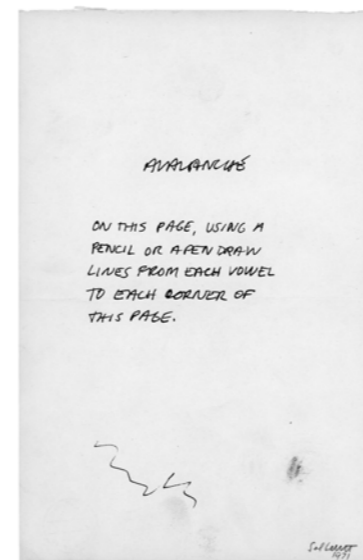 AVALANCHE
ON THIS PAGE, USING A
PENCIL OR A PEN DRAW
LINES FROM EACH VOWEL
TO EACH CORNER OF
THIS PAGE.
Sol Lewitt
1971